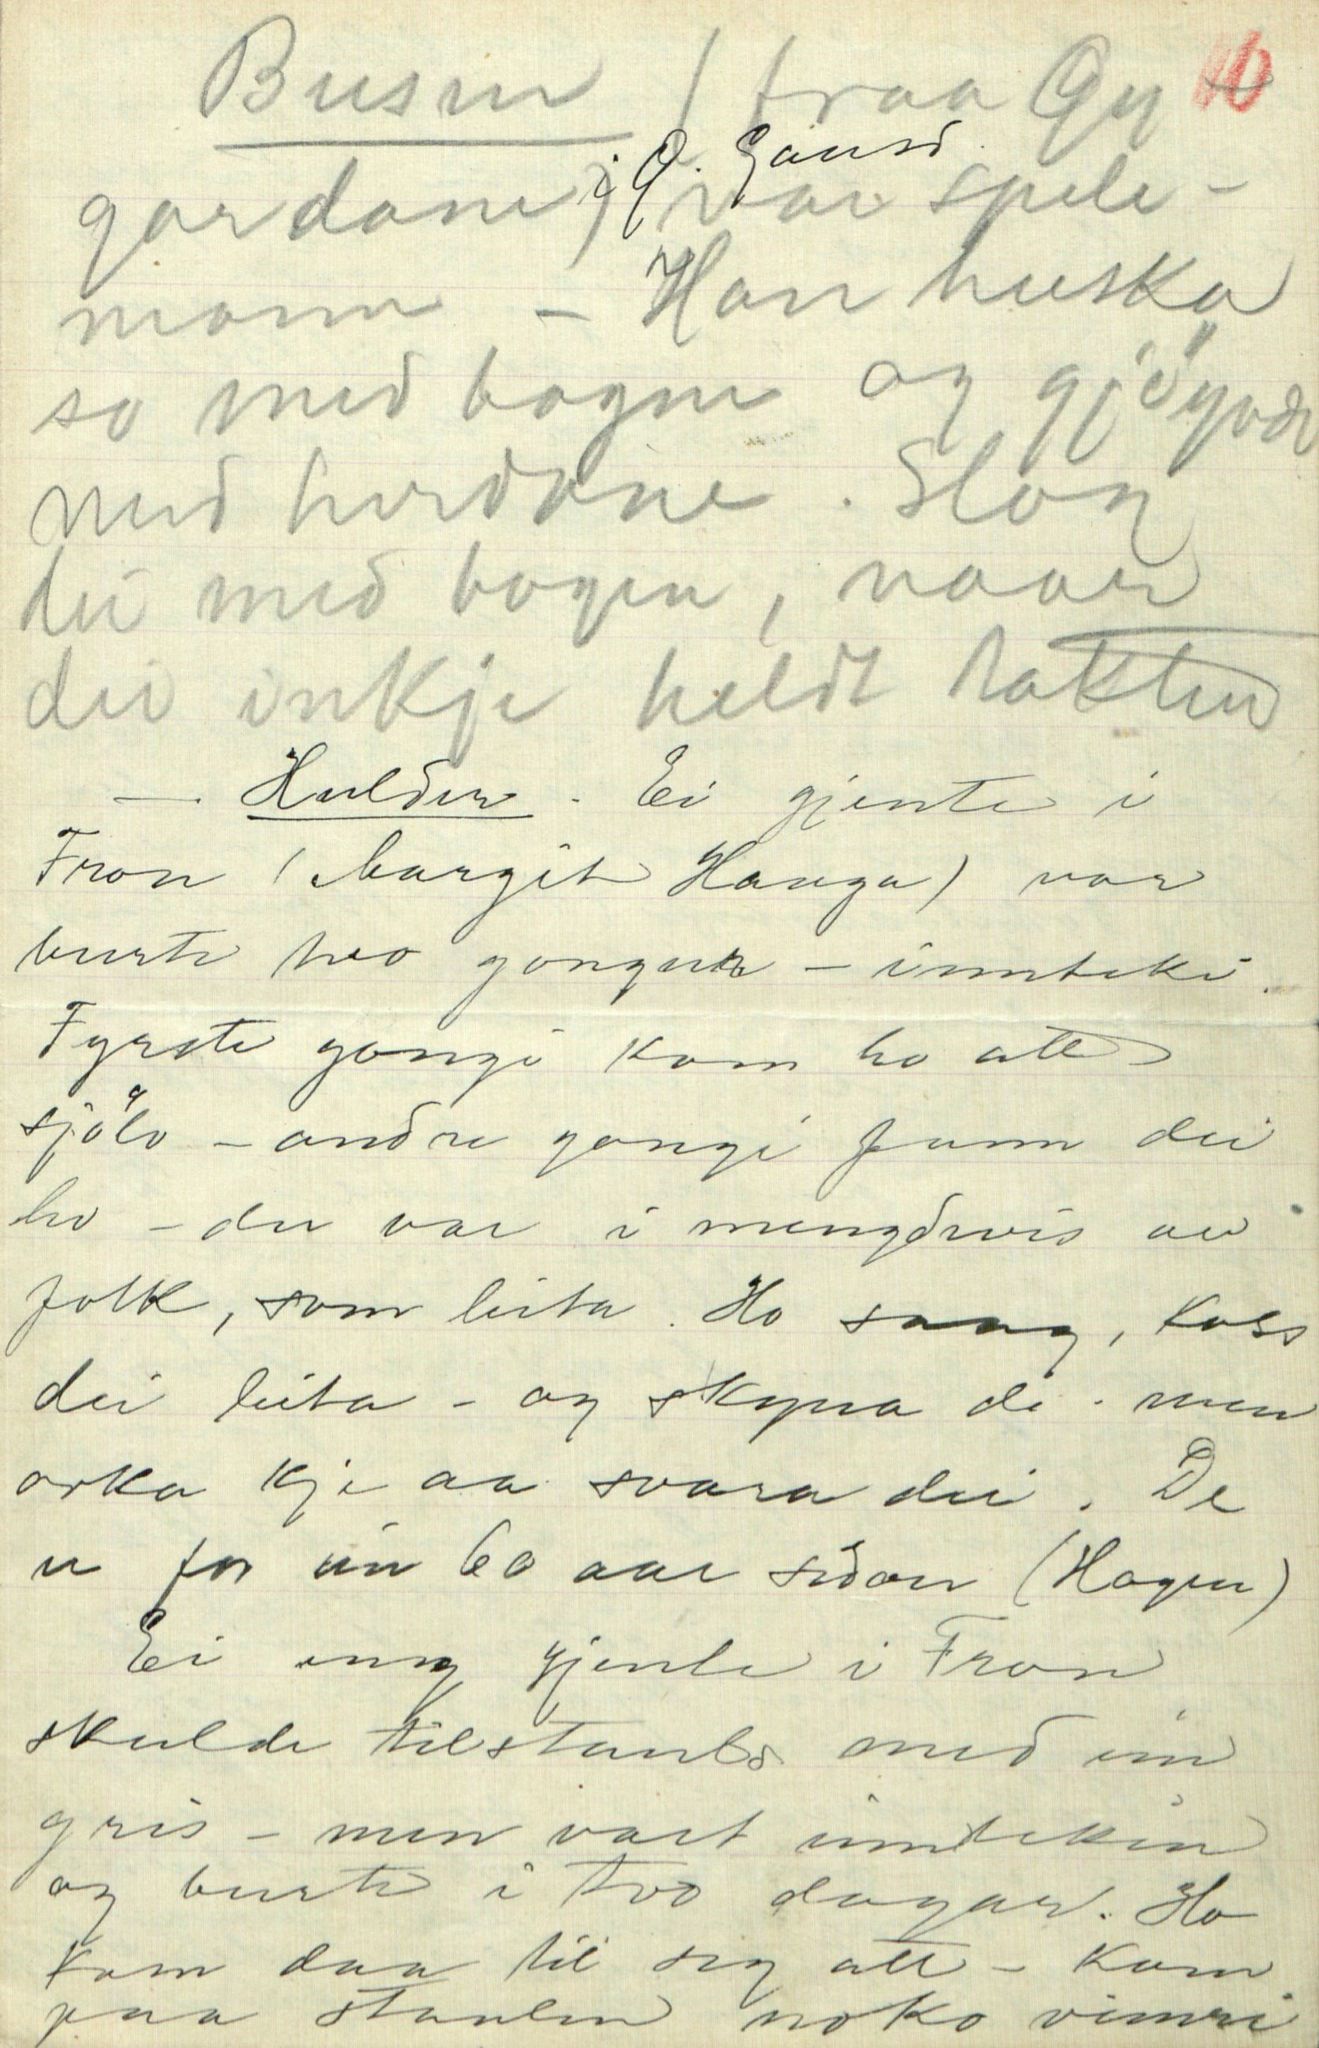 Busen (fraa Gy- 16
gardane i Ø. Gausd.) var spele-
mann - Han huska
so med bogen og gjöyvde
med herdane. Slog
dei med bogen, naar
dei inkje heldt takten
- Hulder. Ei gjente i
Fron (Margit Hauga) var
burte tvo gonger - innteki.
Fyrste gongi kom ho att
sjölv - andre gongi funn dei
ho - der var i mengdevis av
folk, som leita. Ho saag, koss
dei leita - og skyna di - men
orka kje aa svara dei. De
er for ein 60 aar sidan (Hagen)
Ei ung gjente i Fron
skulde tilstauls med ein
gris - men vart innteken
og burte i tvo dagar. Ho
kom daa til seg att - kom
paa staulen noko vimri